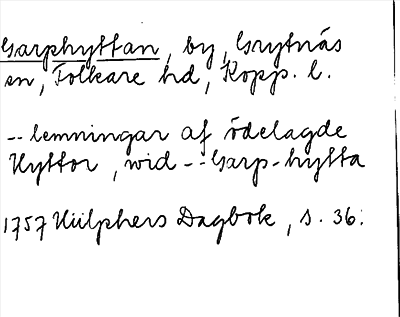 Garphyttan, by, Grytnäs
sn, Folkare hd, Kopp. l.
-- lemningar af ödelagde
Hyttor, wid -- Garp-hytta
1757 Hülphers Dagbok, s. 36.